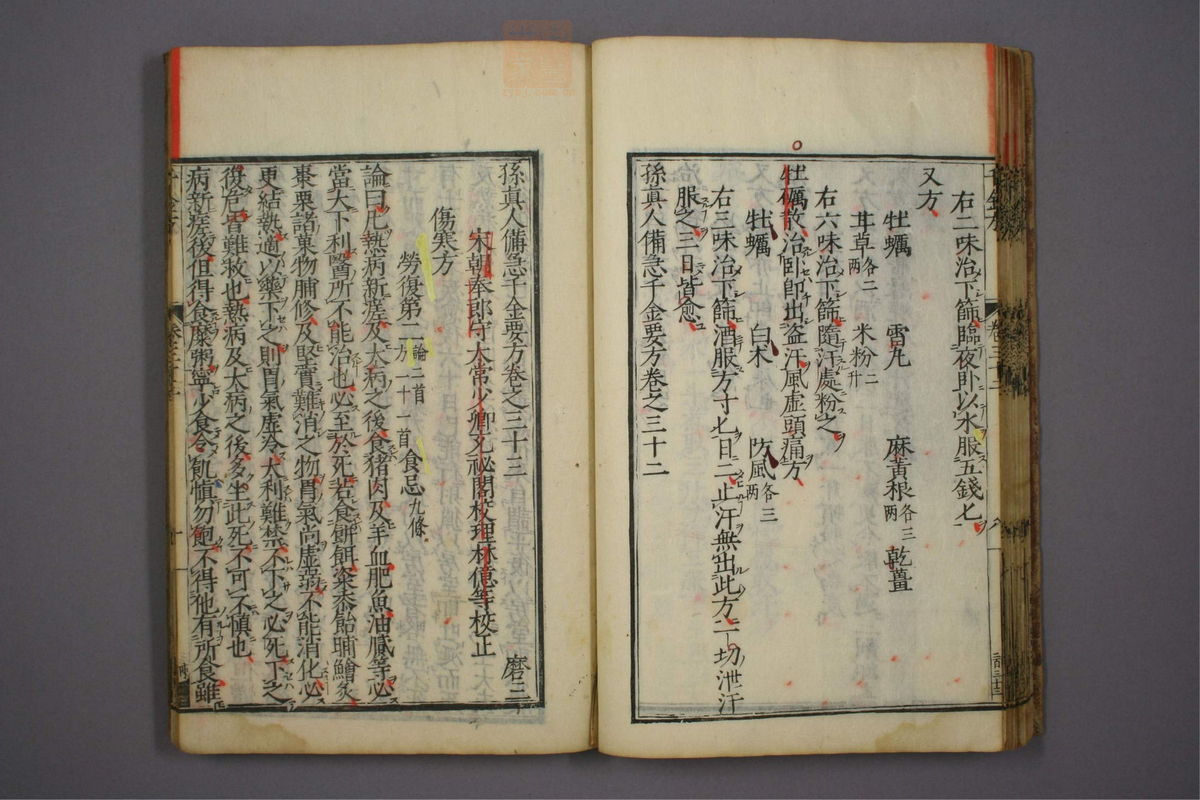 右二味治下篩臨夜卧以水服五錢七
又方
牡蠣 雷丸 麻黃根各三兩 乾薑
甘草各二兩 米粉二升
右六味治下篩隨汗處粉之
牡礪散治卧即出盗汗風虚頭痛方
牡蠣 白术 防風各三兩
右三味治下篩酒服方寸匕日二止汗無出此方一切泄汗
服之三日皆愈
孫真人備急千金要方卷之三十二
孫真人備急千金要方卷之三十三 磨三
宋朝奉郎守太常少卿充祕閣校理林億等校正
傷寒方
勞復第二論二首方二十一首食忌九條
論曰凡熱病新瘥及大病之後食猪肉及羊血肥魚油膩等必
當大下利醫所不能治也必至於死若食餅餌粢黍飴餔鱠炙
棗栗諸菓物脯修及堅實難消之物胃氣尚虚弱不能消化必
更結熱適以藥下之則胃氣虚冷大利難禁不下之必死下之
復危皆難救也熱病及大病之後多坐此死不可不慎也
病新瘥後但得食糜粥寧少食令飢慎勿飽不得他有所食雖